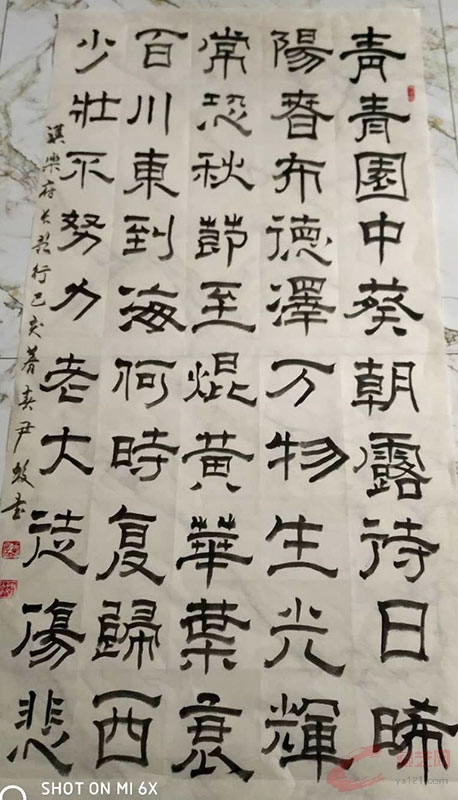 青青園中葵朝露待日晞
陽春布德澤万物生光輝
常恐秋節至焜黃華葉衰
百川東到海何時复歸西
少壯不努力老大徒傷悲
漢樂府長歌行己亥暮春尹書
SHOT ON MI 6X
ya121.com